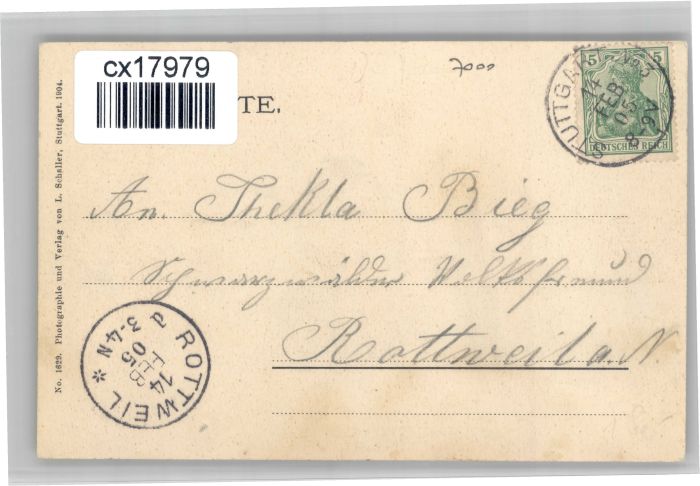 cx17979
TE.
7000
5 5
DEUTSCHES REICH
STUTTGART No. 3
14
FEB
05
8-9V
An. Thekla Bieg
Schwarzwälder Volksfreund
Rottweil a. N.
ROTTWEIL *
14
FEB
05
3-4N
No. 1629. Photographie und Verlag von L. Schaller, Stuttgart. 1904.